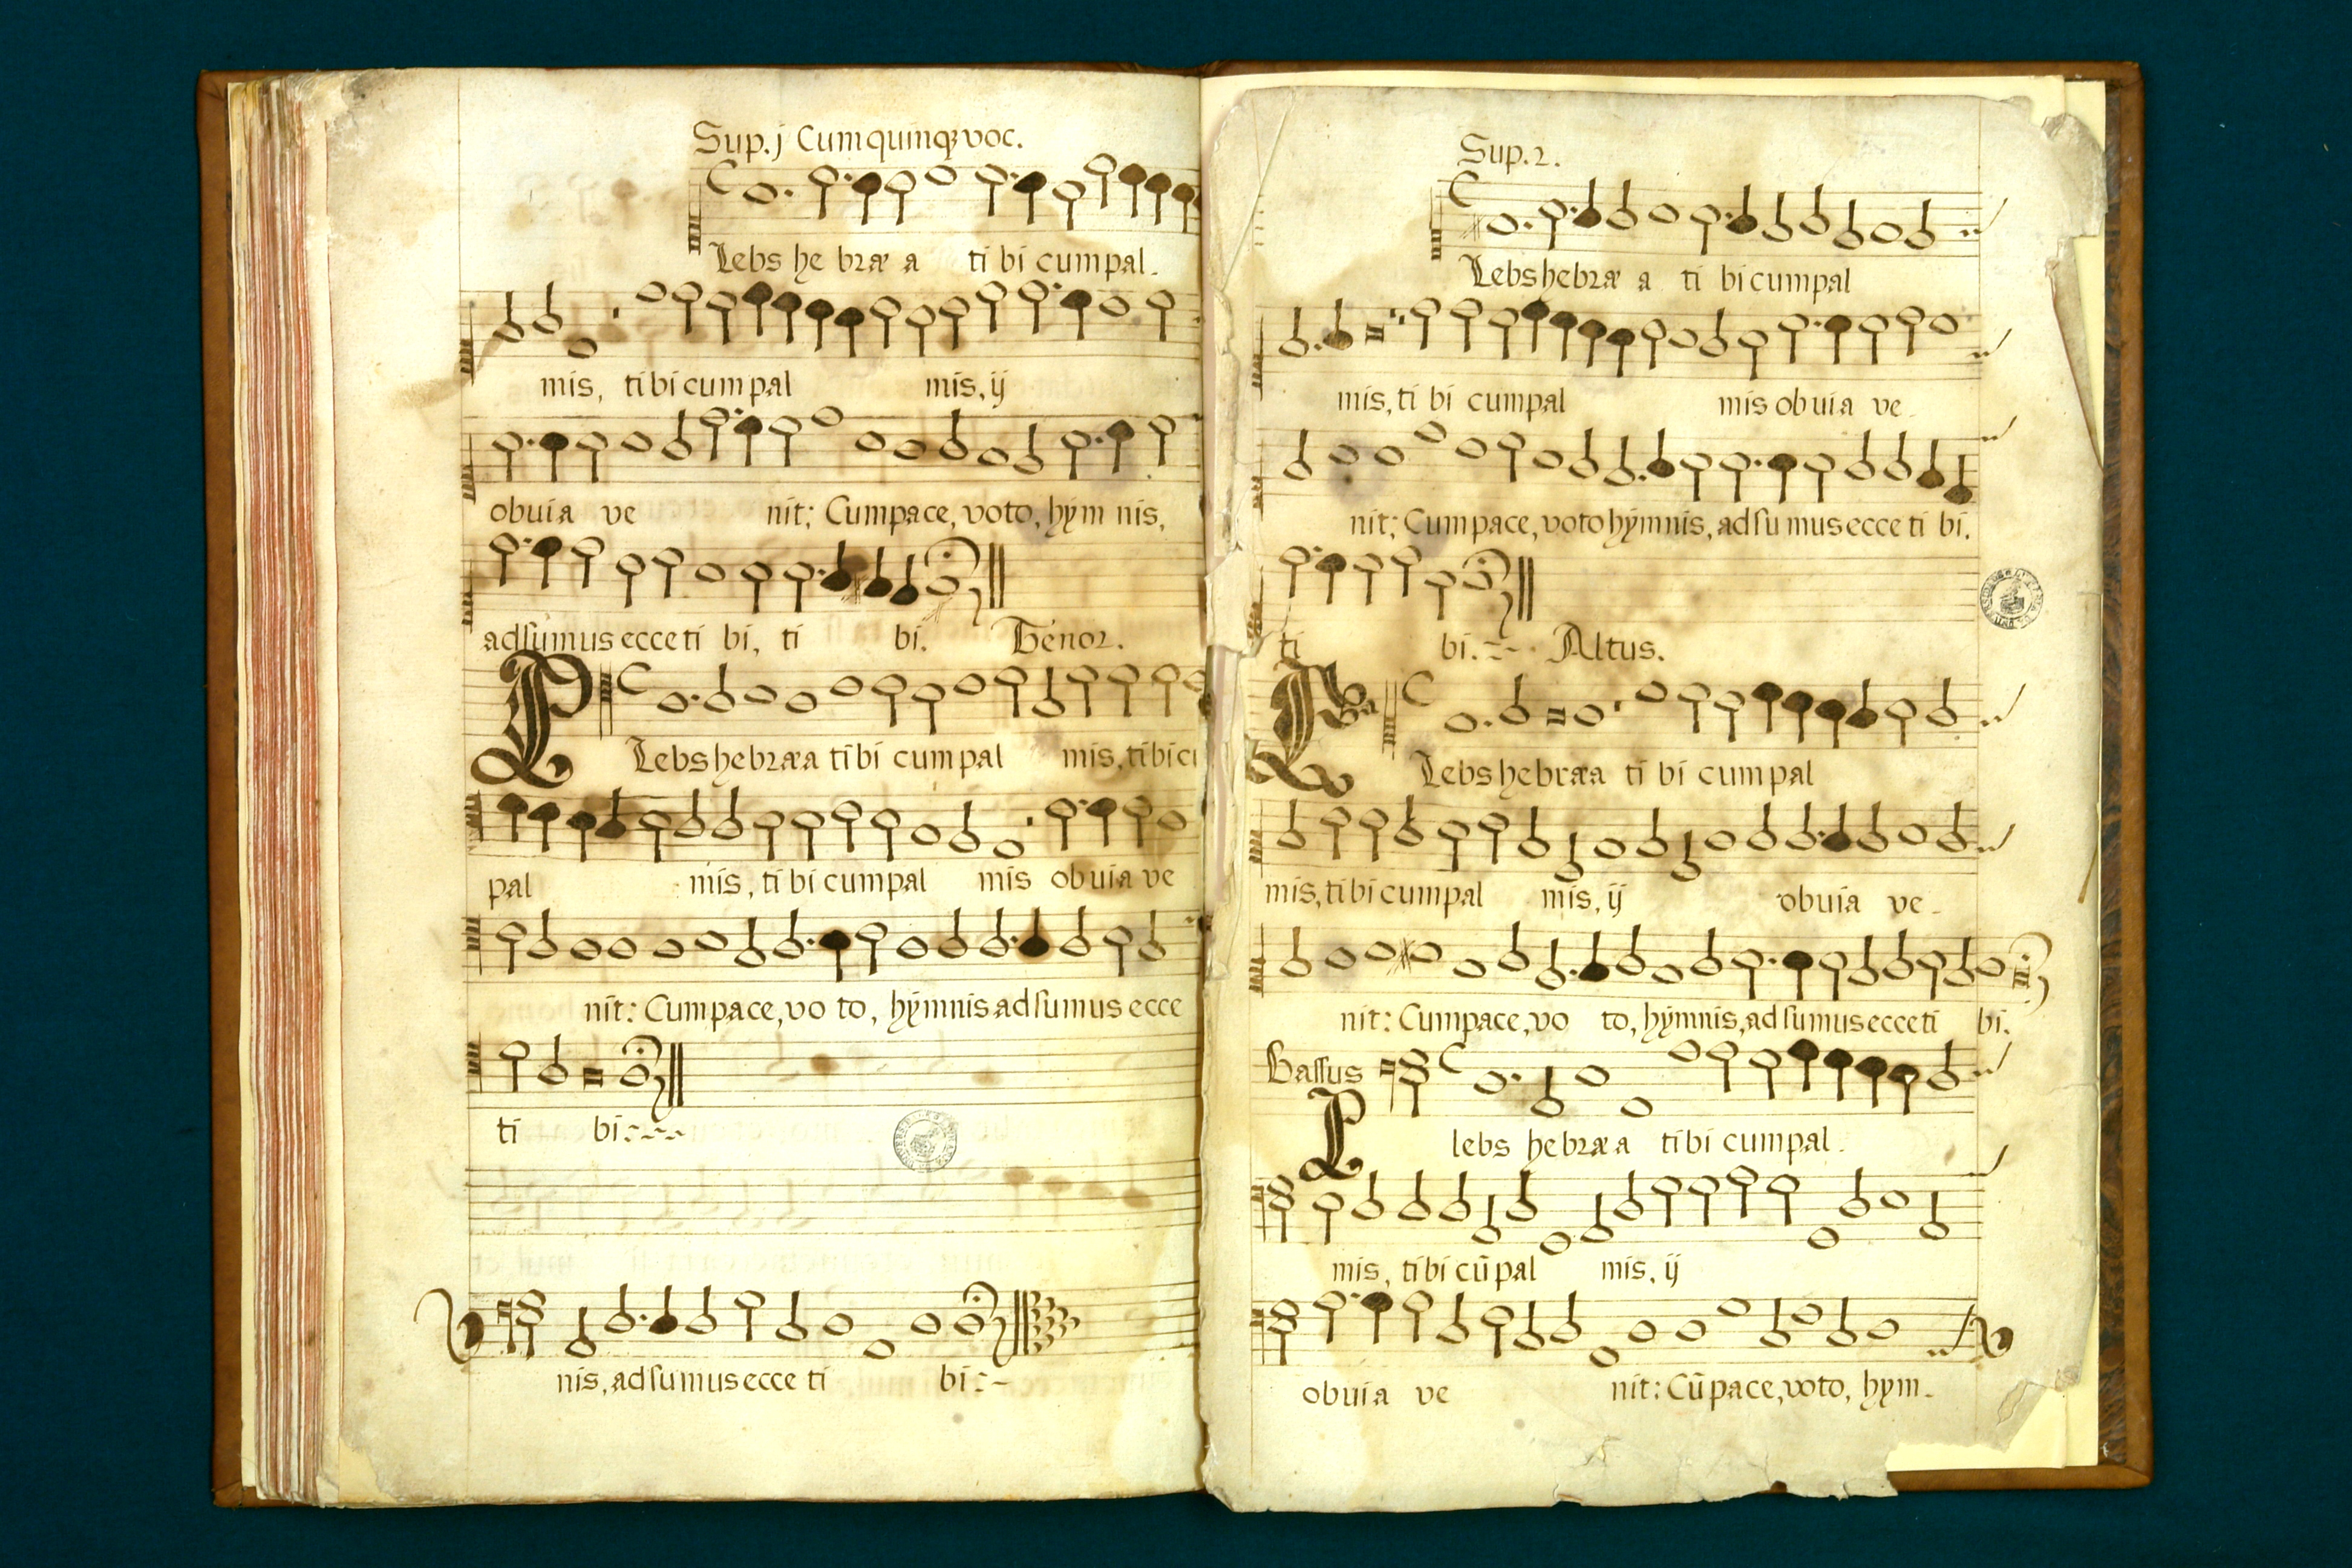 Sup. j Cum quinq; voc.
Lebs he bræ a ti bi cum pal.
mis, ti bi cum pal mis, ij
obuia ve nit; Cum pace, voto, hym nis,
adsumus ecce ti bi, ti bi. Tenor.
P
Lebs hebræa ti bi cum pal mis, ti bi cu
pal mis, ti bi cum pal mis obuia ve
nit: Cum pace, vo to, hymnis adsumus ecce
ti bi:
nis, adsumus ecce ti bi:
Sup. 2.
Lebs hebræ a ti bi cum pal
mis, ti bi cum pal mis obuia ve.
nit; Cum pace, voto hymnis, adsumus ecce ti bi.
ti bi. Altus.
Lebs hebræa ti bi cum pal
mis, ti bi cum pal mis, ij obuia ve.
nit: Cum pace, vo to, hymnis, adsumus ecce ti bi.
Bassus
P
lebs hebræa ti bi cum pal.
mis, ti bi cū pal mis, ij
obuia ve nit: Cū pace, voto, hym.